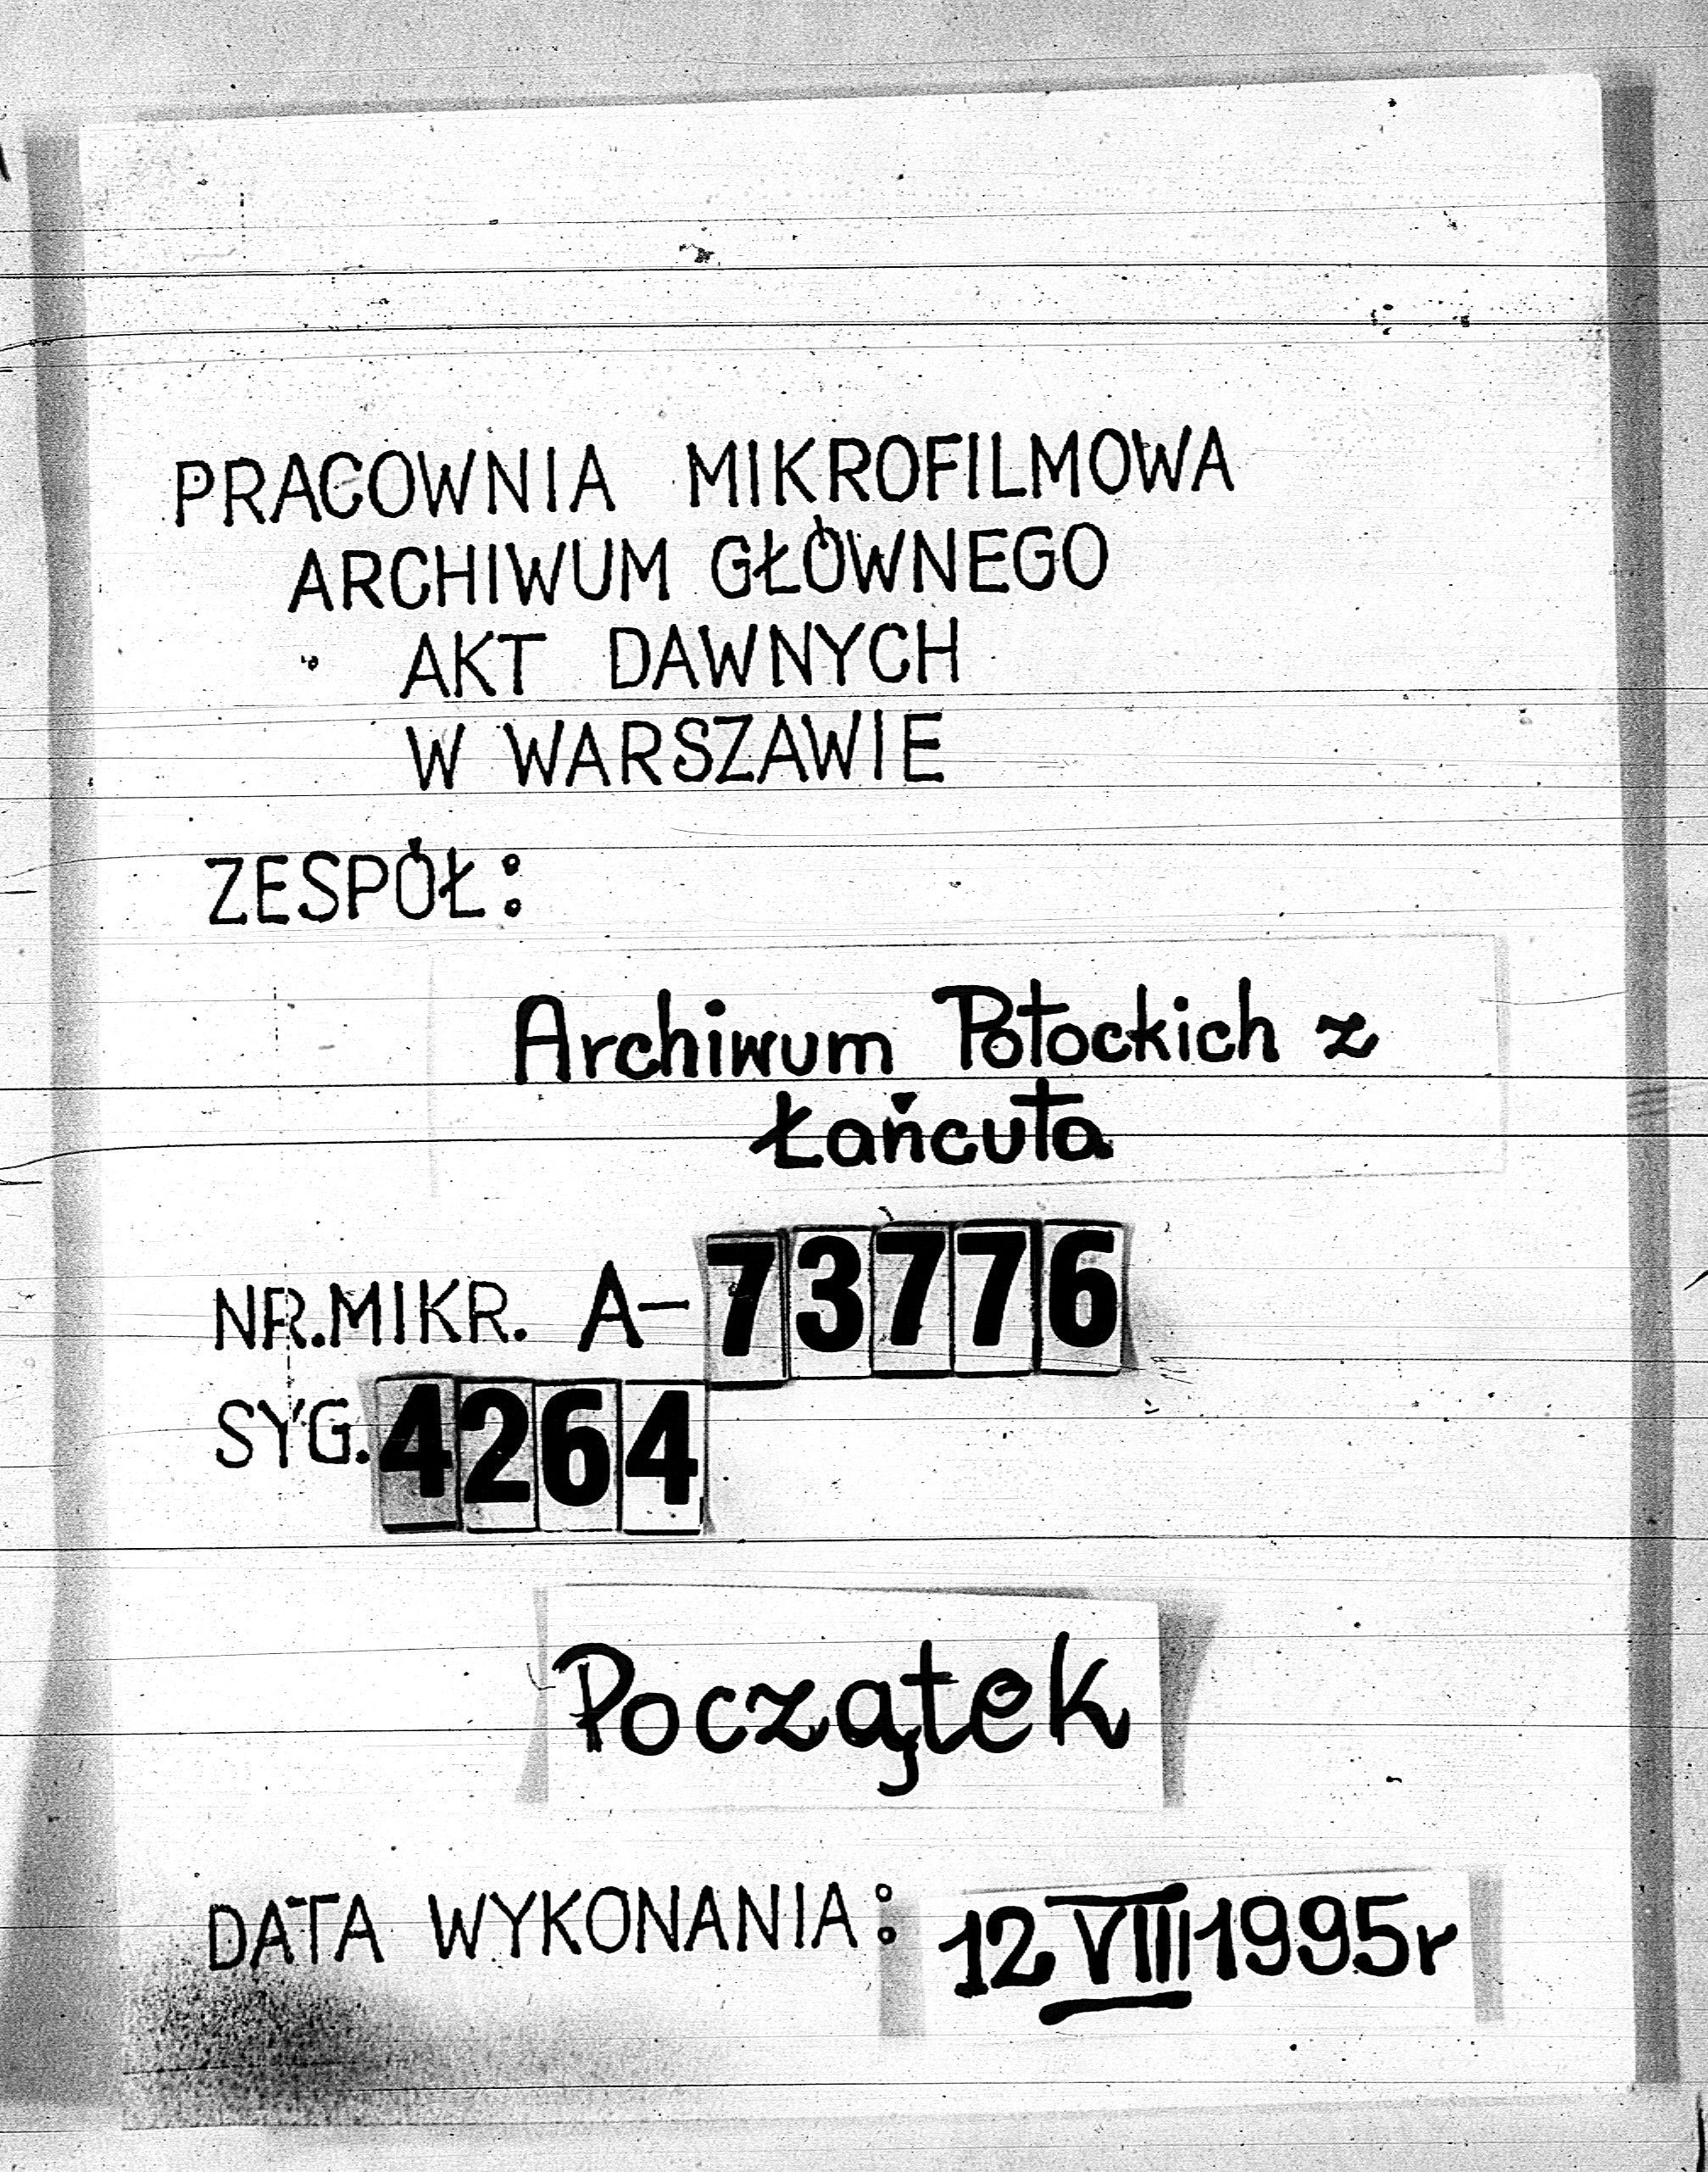 PRACOWNIA MIKROFILMOWA
ARCHIWUM GŁÓWNEGO
AKT DAWNYCH
W WARSZAWIE
ZESPÓŁ:
Archiwum Potockich z
Łańcuta
NR.MIKR. A-73776
SYG.4264
Początek
DATA WYKONANIA: 12 VIII 1995r